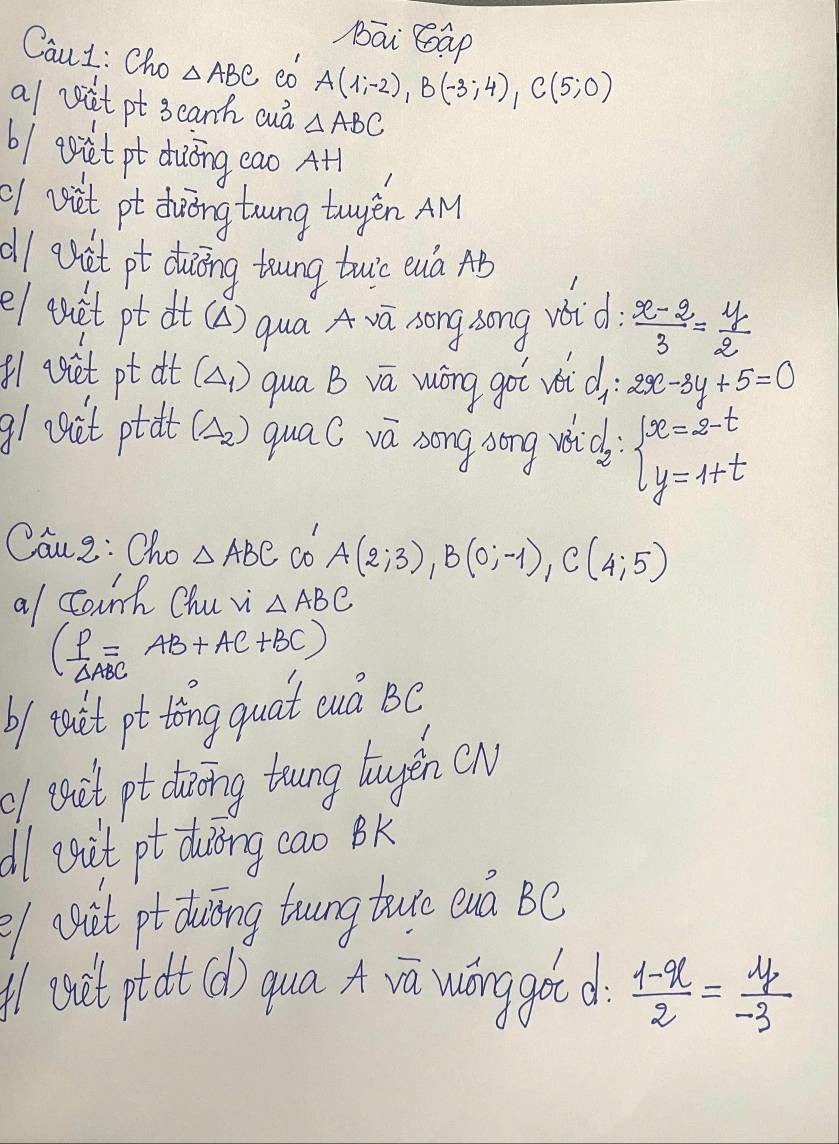 Bài Tập
Câu 1: Cho △ABC có A(1;-2), B(-3;4), C(5;0)
a/ Viết pt 3 cạnh của △ABC
b/ Viết pt đường cao AH
c/ Viết pt đường trung tuyến AM
d/ Viết pt đường trung trực của AB
e/ Viết pt đt (Δ) qua A và song song với d: (x-2)/3 = y/2
f/ Viết pt đt (Δ₁) qua B và vuông góc với d₁: 2x-3y+5=0
g/ Viết pt đt (Δ₂) qua C và song song với d₂: { x=2-t
y=1+t
Câu 2: Cho △ABC có A(2;3), B(0;-1), C(4;5)
a/ Tính Chu vi △ABC
(P△ABC = AB+AC+BC)
b/ Viết pt tổng quát của BC
c/ Viết pt đường trung tuyến CN
d/ Viết pt đường cao BK
e/ Viết pt đường trung trực của BC
f/ Viết pt đt (d) qua A và vuông góc d: (1-x)/2 = y/-3